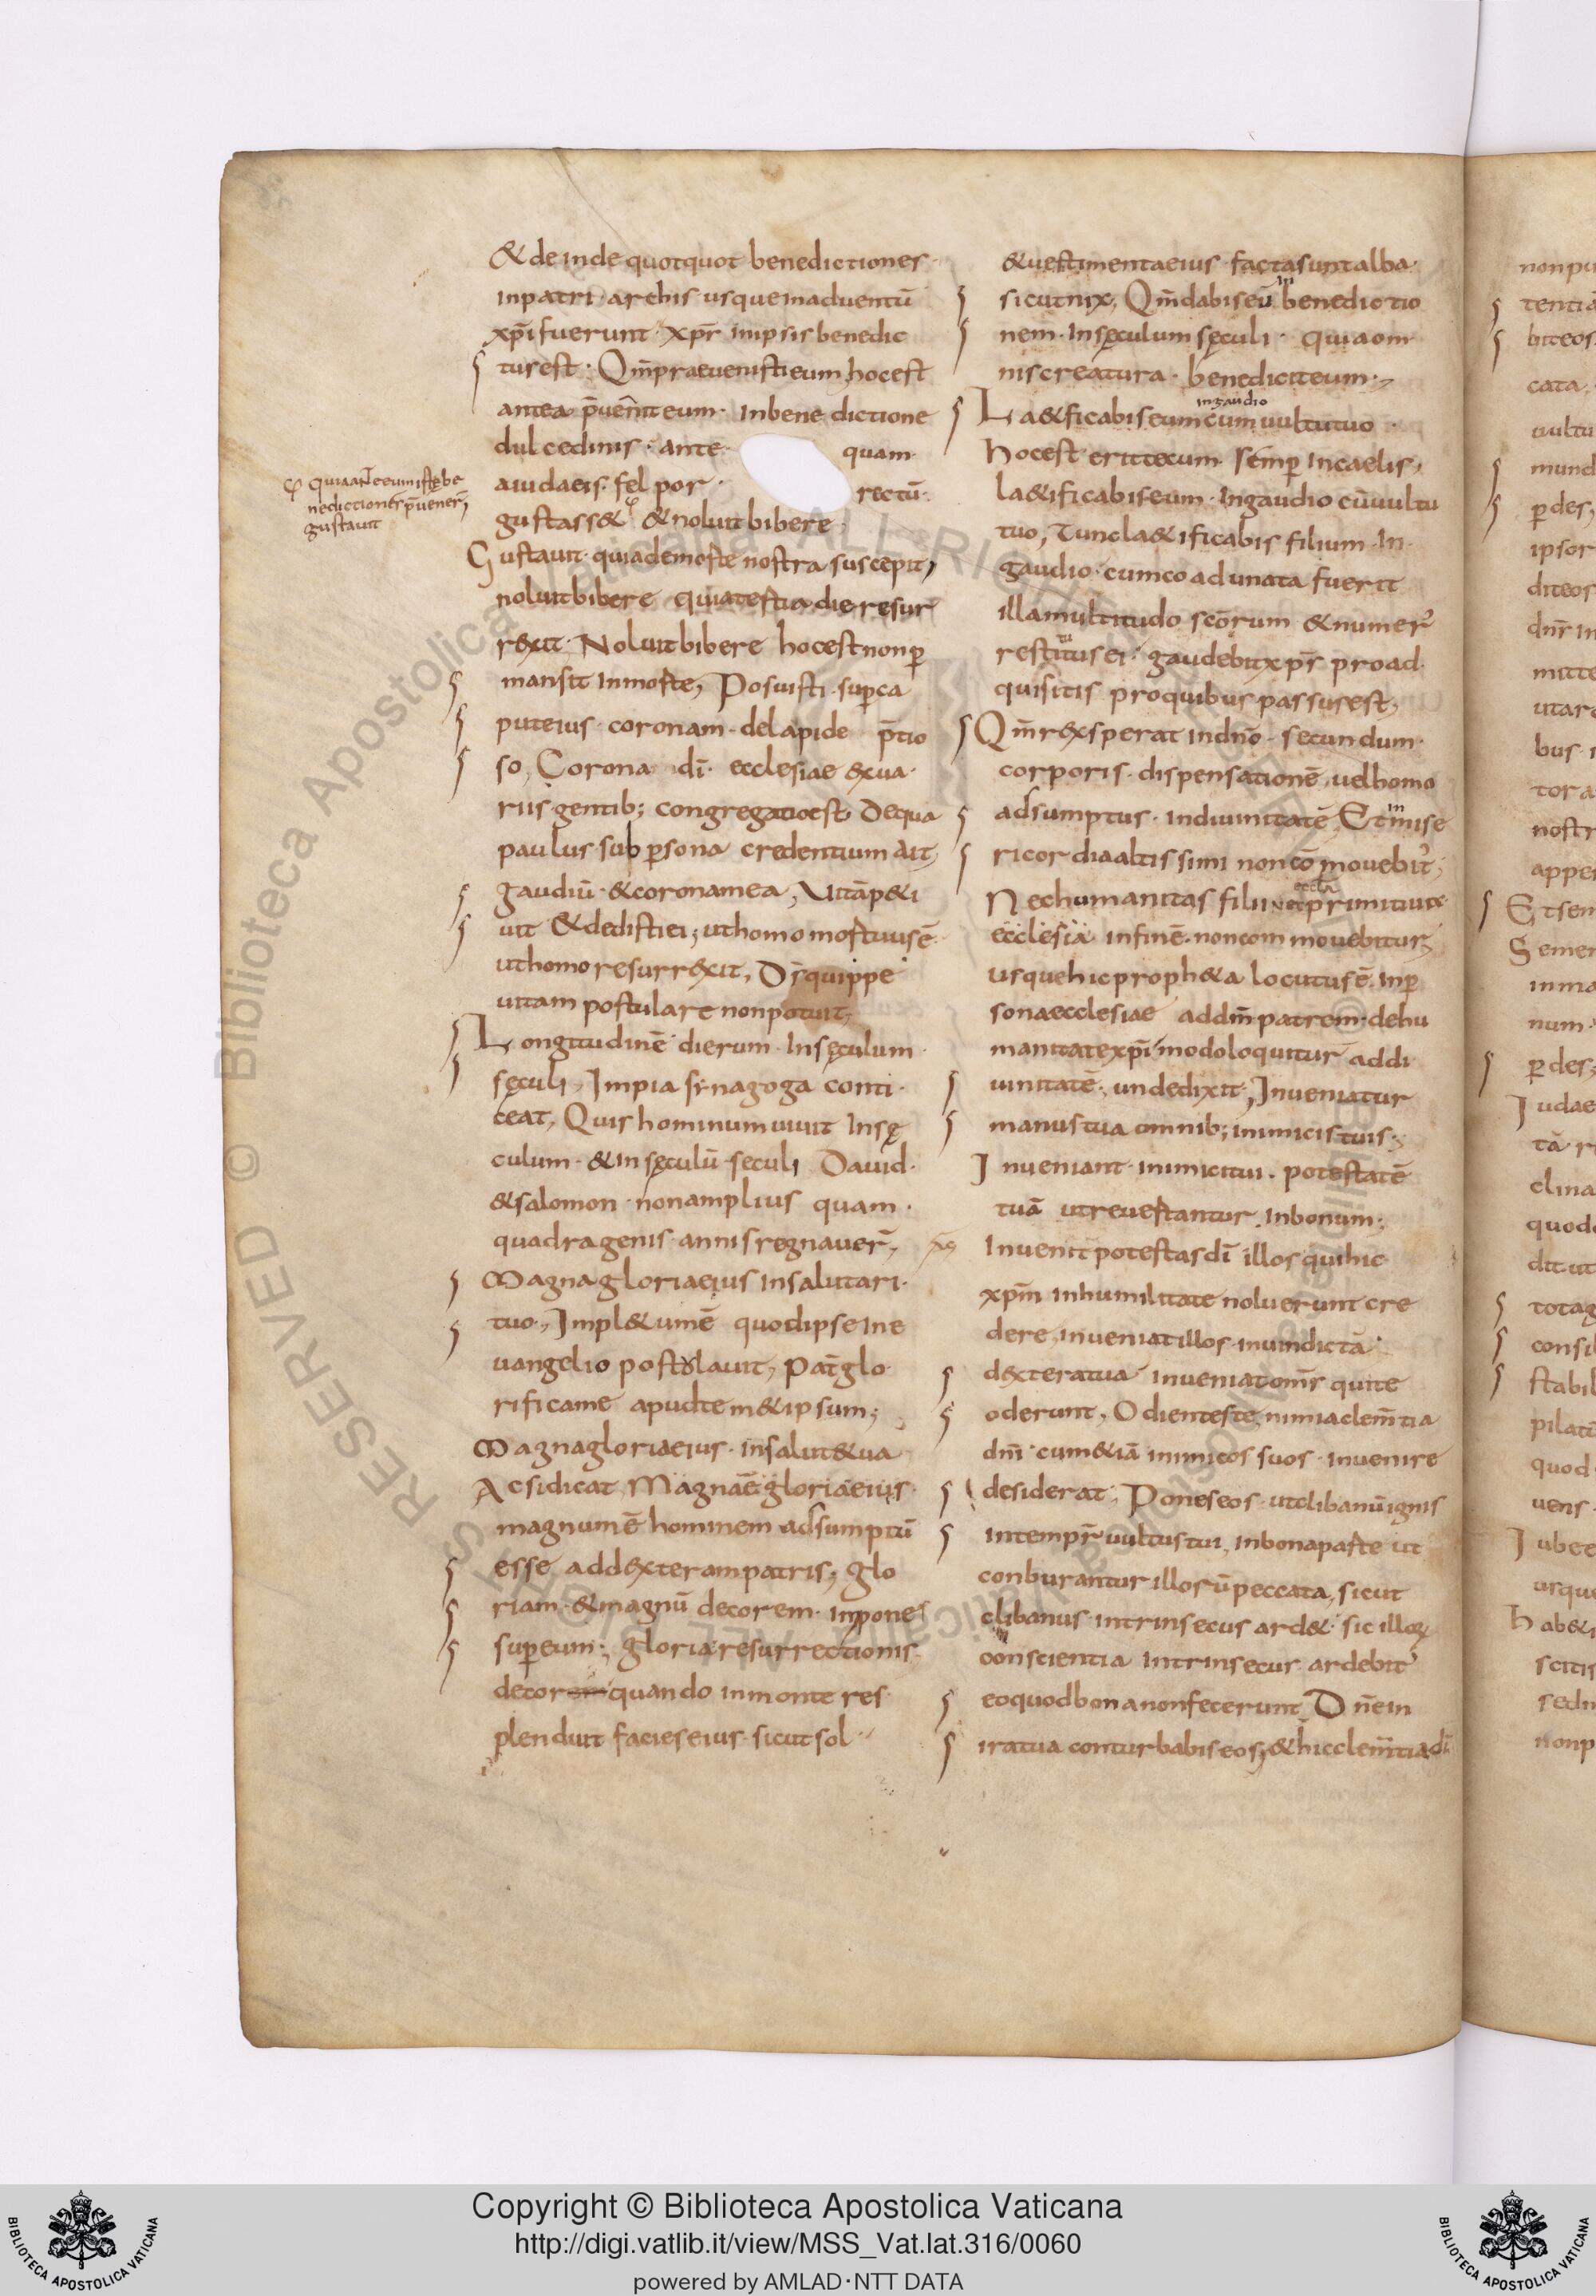 & de inde quotquot benedictiones·
inpatri·archis usque inaduentū
xp̄i fuerunt· xp̄s inipsis benedic
tus est· Qm̄ praeuenisti eum, hoc est
antea p̄uen̄it eum· In bene dictione
dulcedinis· ante quam·
a iudaeis· fel por rectū·
gustass& & noluit bibere·
Gustauit· quia de morte nostra suscepit,
noluit bibere quia tertia die resur
r&xit· Noluit bibere hoc est non ꝑ
mansit In morte, Posuisti· suꝑ ca
put eius· coronam· de lapide p̄tio
so, Corona dī· ecclesiae & ua·
riis gentib; congregatio est· De qua
paulus sub ꝑsona credentium Ait,
gaudiū· & corona mea, Uitā p&i
uit & dedisti ei, ut homo mortuus ē·
ut homo resurr&xit, D̄s quippe
uitam postulare non potuit,
Longitudinē dierum· In sęculum·
sęculi, Impia synagoga conti·
ceat, Quis hominum uiuit In sę
culum· & in sęculū· seculi Dauid·
& salomon· non amplius quam·
quadragenis· annis regnauer̄,
Magna gloria eius In salutari·
tuo·, Impl&um ē quod ipse In e
uangelio postolauit, Pat̄ glo
rifica me apud tem&ipsum;
Magna gloria eius· In salut& ua
Ac si dicat Magna ē gloria eius·
magnum ē hominem adsumptū
esse ad d&xteram patris, glo
riam· & magnū decorem· inpones
suꝑ eum; gloria resurrectionis
decor quando in monte res·
plenduit facies eius· sicut sol
quia an̄ eum istę be
nedictiones p̄uener̄,
gustauit
& uestimenta eius· facta sunt alba·
sicut nix, Qm̄ dabis eū in benedictio
nem· In sęculum sęculi· quia om
nis creatura· benedicit eum·,
La&ificabis eum in gaudio cum uultu tuo·
hoc est erit tecum· semꝑ In caelis,
la&ificabis eum· In gaudio cū uultu
tuo, Tunc la&ificabis filium· In·
gaudio· cum coadunata fuerit
illa multitudo scōrum & numer᾽
restitutus ei· gaudebit xp̄s pro ad
quisitis pro quibus passus est,
Qm̄ r&x sperat in dn̄o· secundum·
corporis· dispensationē, uel homo
adsumptus· In diuinitatē Et in mise
ricordia altissimi non cōmouebit᾽,
Nec humanitas filii nec primitiuae
ecclesia in finē· non commouebitur,
usque hic proph&a locutus ē· In ꝑ
sona ecclesiae ad dm̄ patrem· de hu
manitate xp̄i modo loquitur ad di·
uinitatē· unde dixit·, Inueniatur
manus tua omnib; inimicis tuis·,
Inueniant· inimici tui· potestatē
tuā ut reuertantur In bonum;
Inuenit potestas dī illos qui hic
xp̄m In humilitate noluerunt cre
dere, inueniat illos· in uindicta·
d&xtera tua inueniat om̄s qui te
oderunt, Odientes te, nimia clem̄tia
dn̄i· cum &iā inimicos suos· inuenire
desiderat, Pones eos· ut clibanū ignis
In tempr̄ uultus tui, In bona parte ut
conburantur illorū peccata, sicut
clibanus· intrinsecus ard&· sic illoꝝ
conscientia Intrinsecus ardebit᾽
eo quod bona non fecerunt, Dn̄e in
ira tua conturbabis eos, & hic clem̄tia dī
Copyright © Biblioteca Apostolica Vaticana
http://digi.vatlib.it/view/MSS_Vat.lat.316/0060
powered by AMLAD·NTT DATA